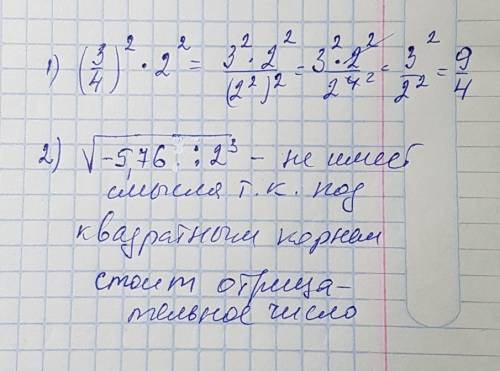 1) (3/4)² · 2² = 3² · 2² / (2²)² = 3² · 2² / 2⁴ ² = 3² / 2² = 9/4
2) √-5,76 : 2³ - не имеет
смысла т.к. под
квадратным корнем
стоит отрица-
тельное число